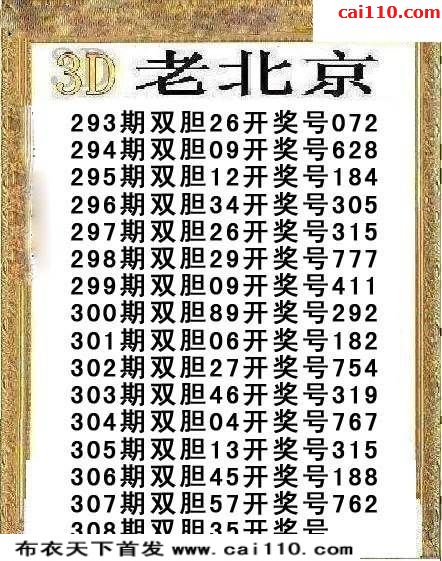 cai110.com
3D 老北京
293期双胆26开奖号072
294期双胆09开奖号628
295期双胆12开奖号184
296期双胆34开奖号305
297期双胆26开奖号315
298期双胆29开奖号777
299期双胆09开奖号411
300期双胆89开奖号292
301期双胆06开奖号182
302期双胆27开奖号754
303期双胆46开奖号319
304期双胆04开奖号767
305期双胆13开奖号315
306期双胆45开奖号188
307期双胆57开奖号762
308期双胆35开奖号
布衣天下首发 www.cai110.com